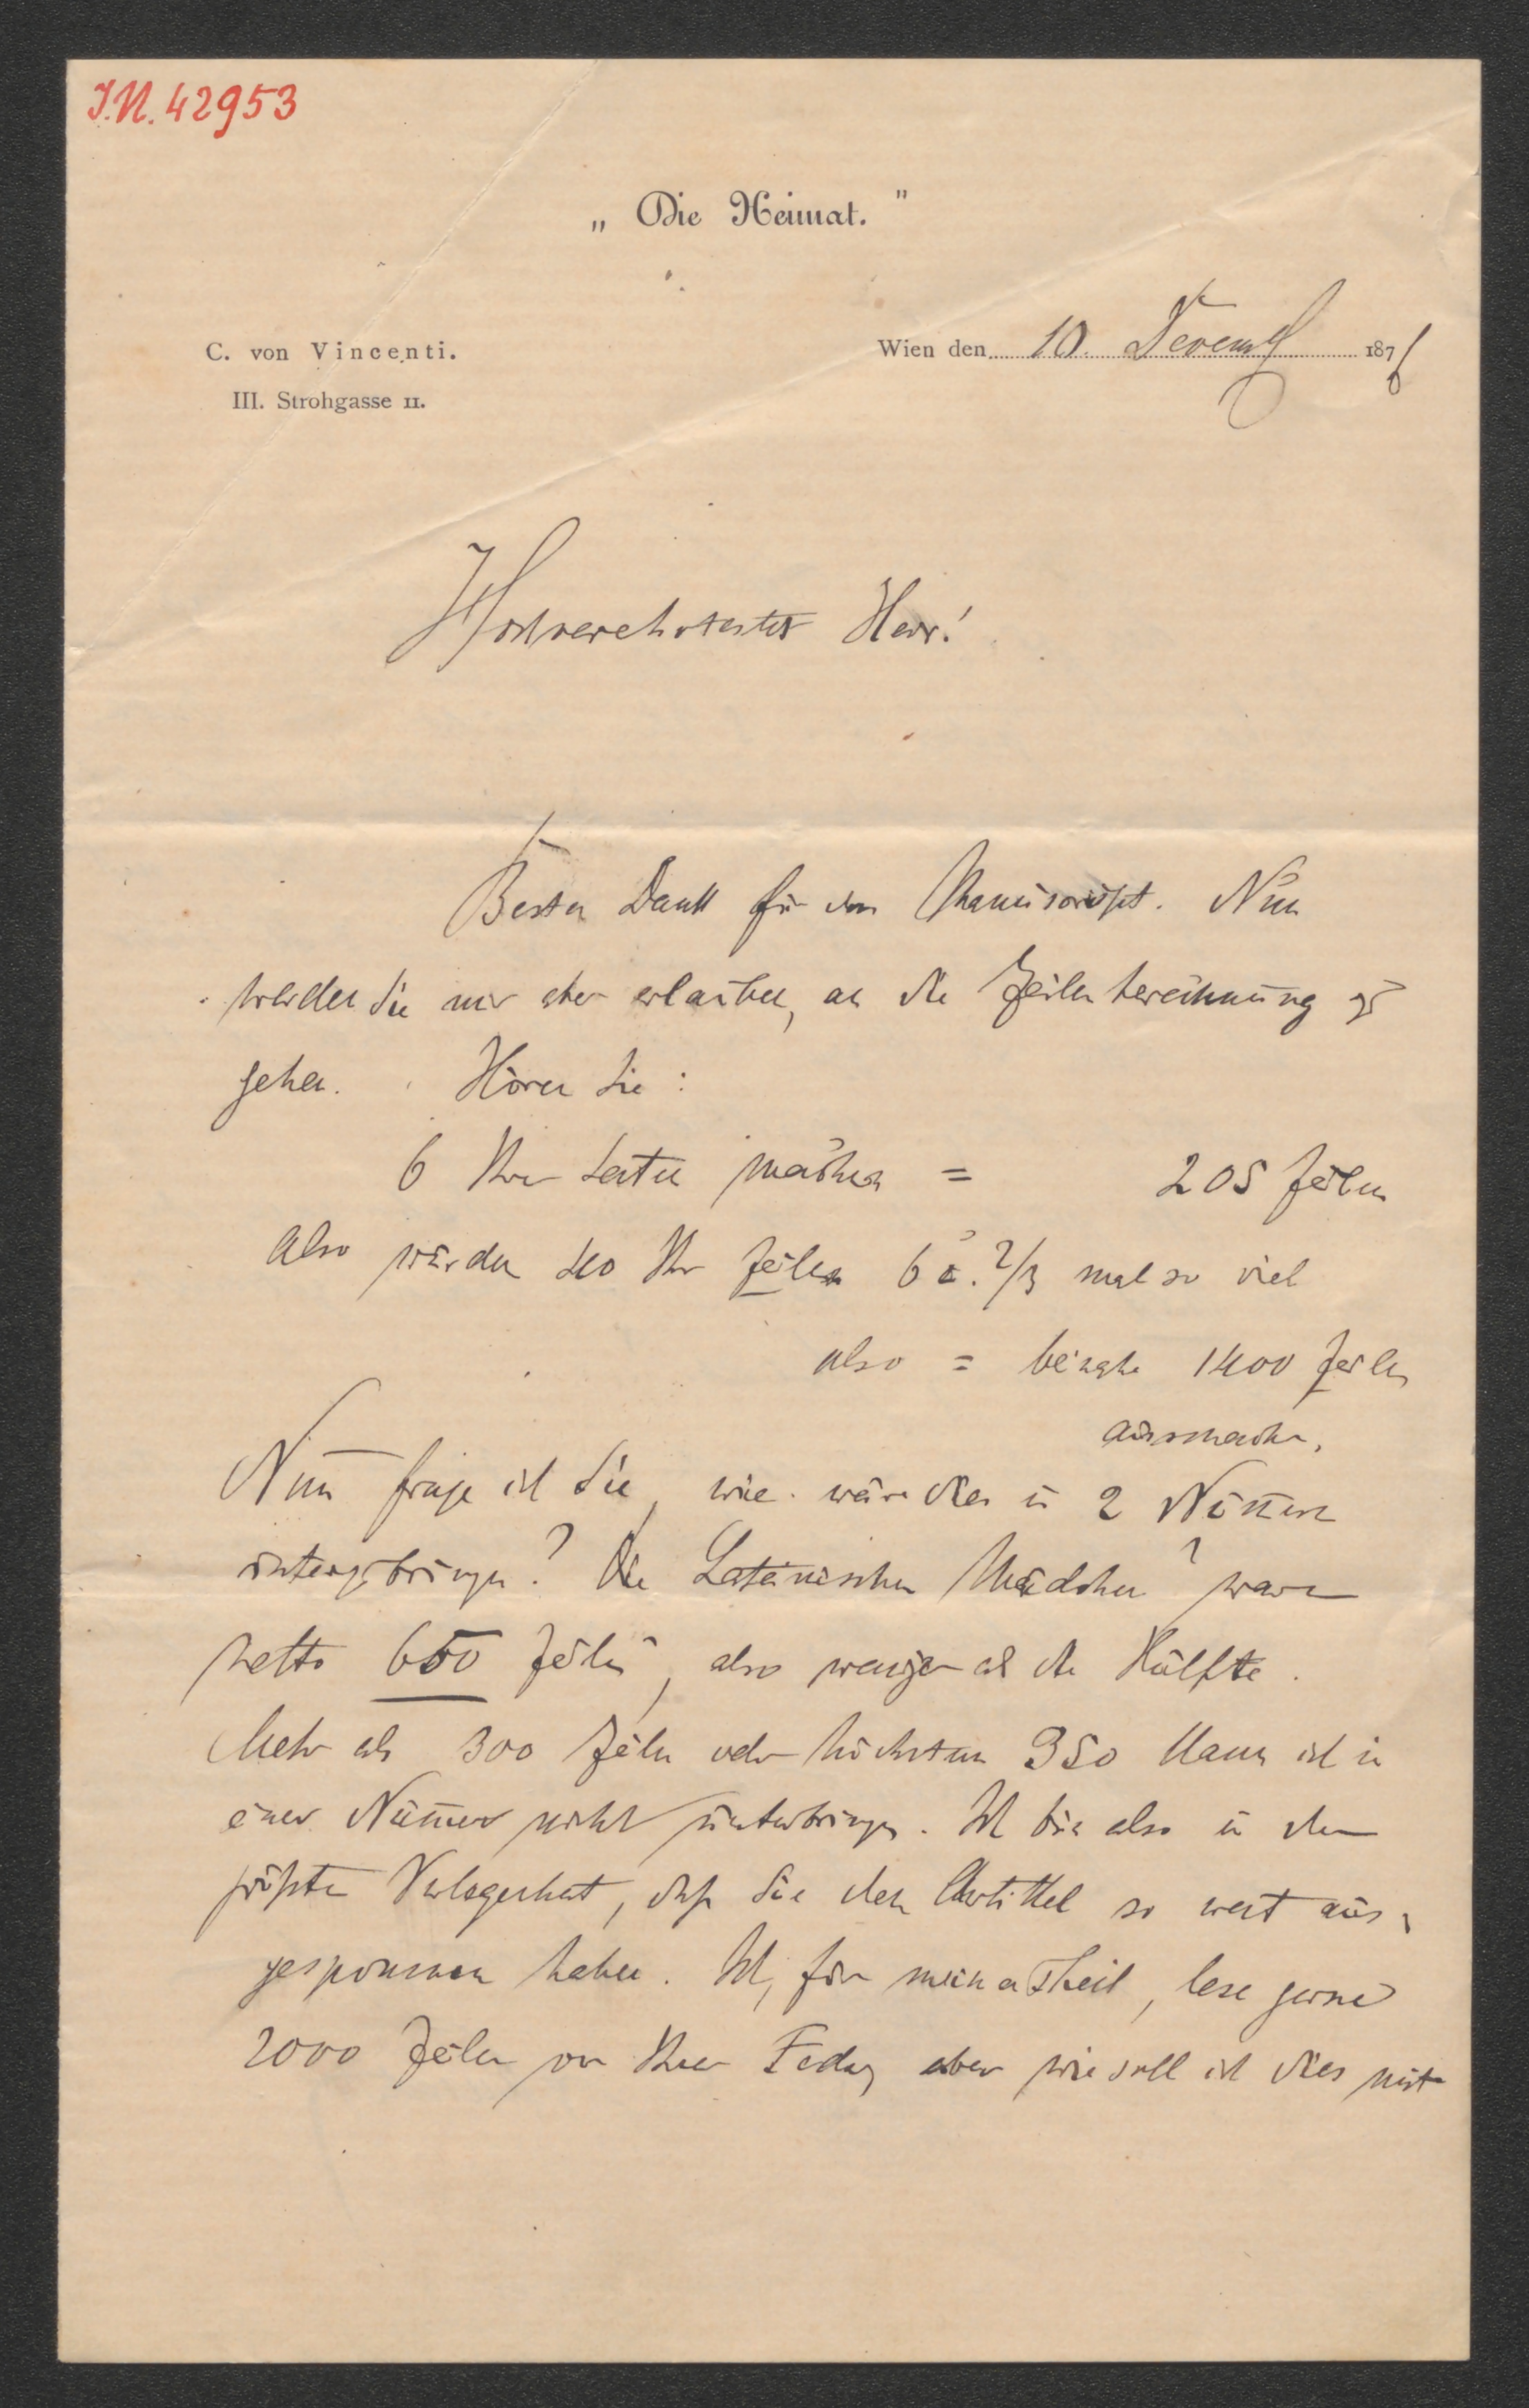 I.N. 42953
„ Die Heimat. "
C. von Vincenti.
Wien den 10. Decemb 187
III. Strohgasse 11.
Hochverehrtester Herr!
Besten Dank für das Manuscript. Nun
werden Sie mir aber erlauben, an die Zeilenberechnung zu
gehen. Hören Sie:
6 Ihrer Seiten machen = 205 Zeilen
Also würden 40 Ihr Zeilen 6 2/3 mal so viel
also = beinahe 1400 Zeilen
ausmachen.
Nun frage ich Sie, wie wäre dies in 2 Nummern
unterzubringen? Die Lateinischen Mädchen waren
netto 650 Zeilen, also weniger als die Hälfte.
Mehr als 300 Zeilen oder höchstens 350 kann ich in
einer Nummer nicht unterbringen. Ich bin also in der
größten Verlegenheit, daß Sie den Artikel so weit aus-
gesponnen haben. Ich, für meinen Theil, lese gerne
2000 Zeilen von Ihrer Feder, aber wie soll ich dies mit